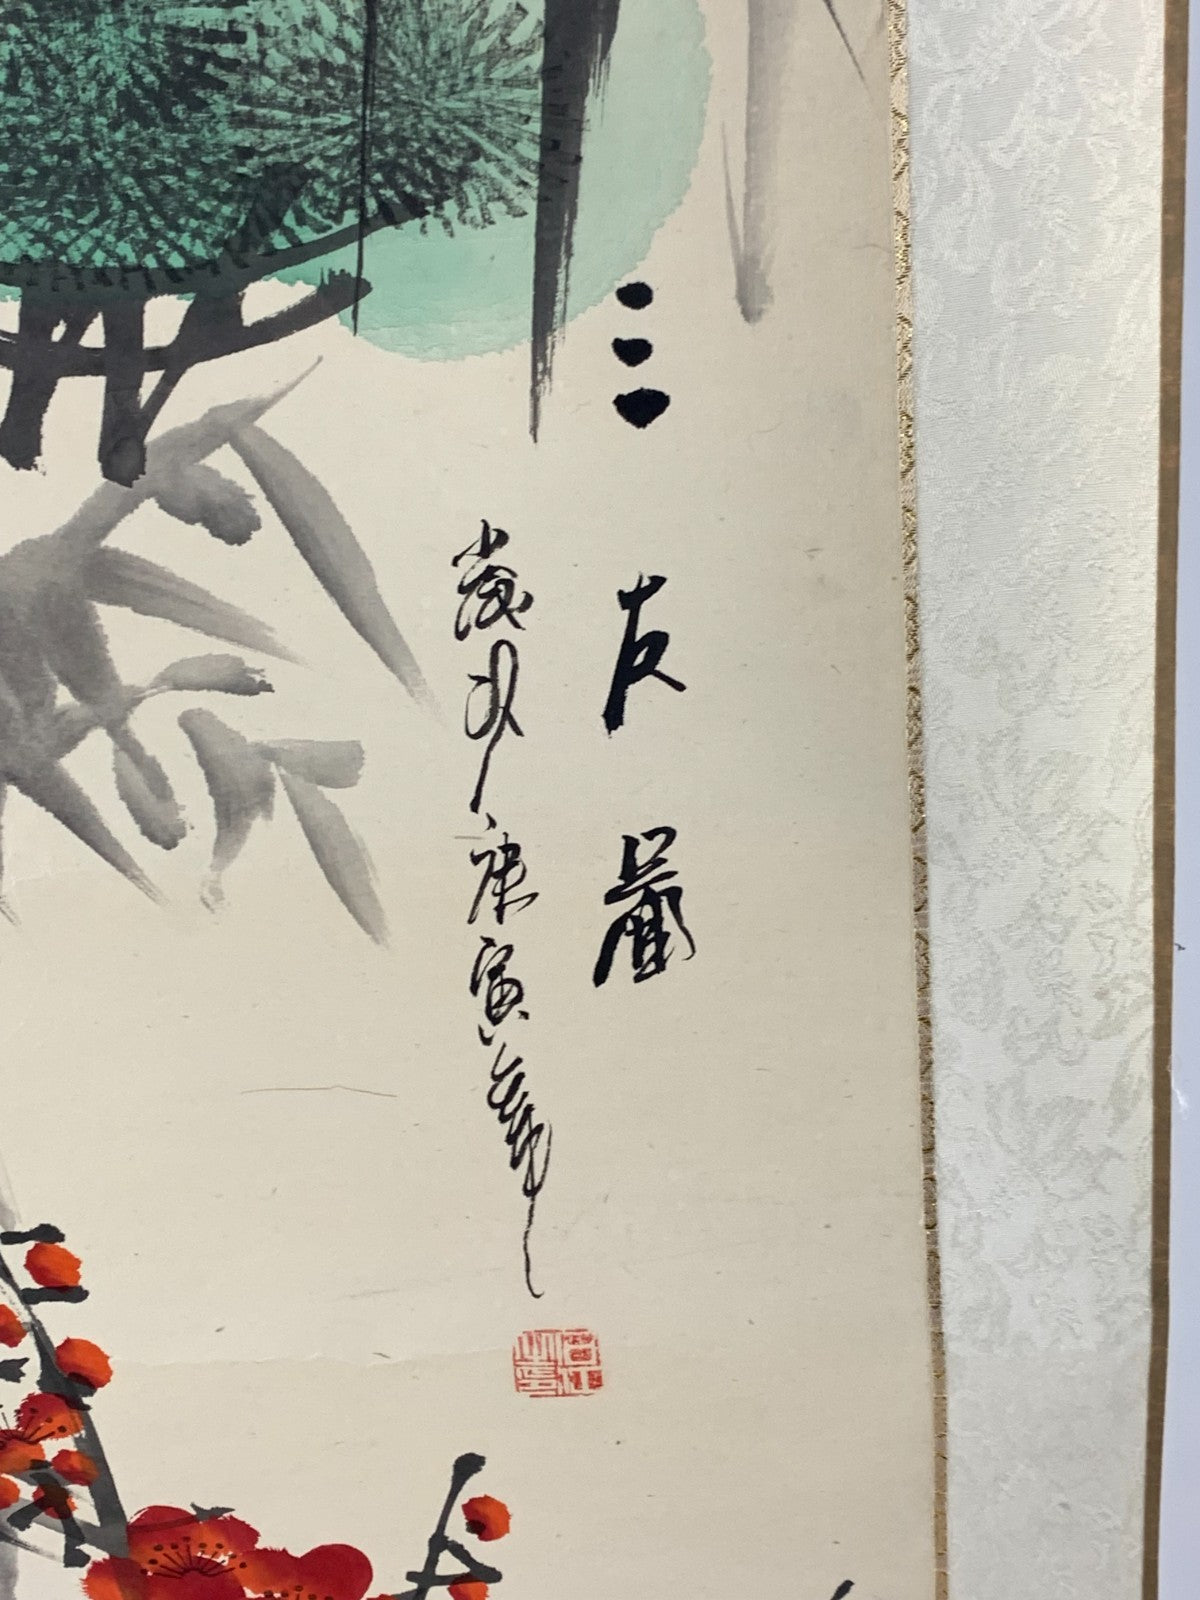 三友圖
歲次庚寅年